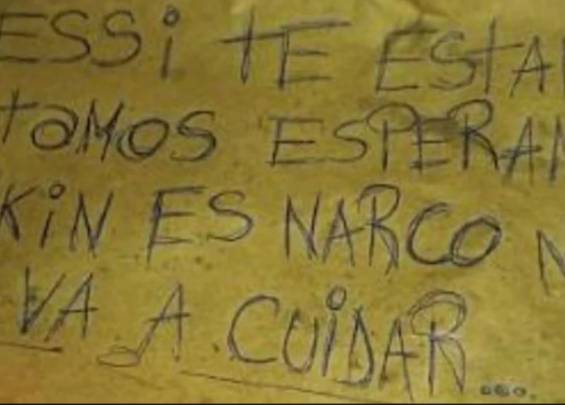 ESSi TE ESTA
taMOS ESPERAN
KiN ES NARCO N
VA A CUiDAR....